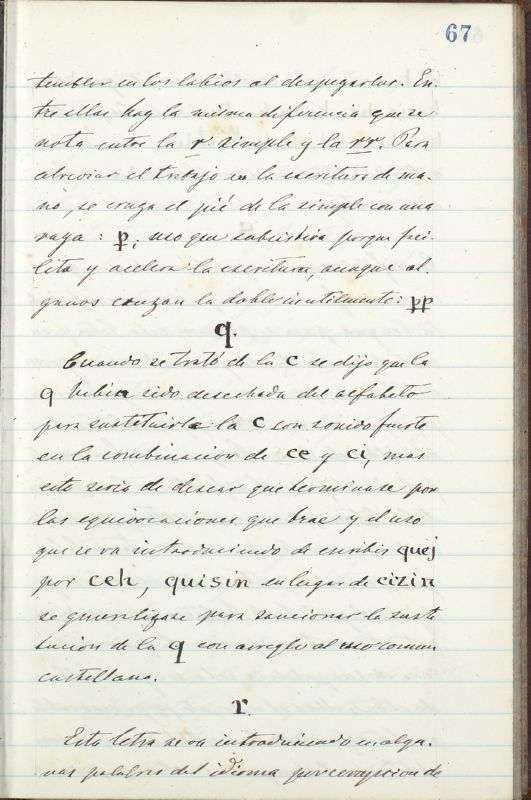 67
temblor en los labios al despegarlos. En-
tre ellas hay la misma diferencia que se
nota entre la r simple y la rr. Para
abreviar el trabajo en la escritura de ma-
no, se cruza el pié de la simple con una
raya: ꝑ, uso que subsistirá porque faci-
lita y acelera la escritura, aunque al-
gunos cruzan la doble inutilmente: ꝑꝑ
q.
Cuando se trató de la c se dijo que la
q habia sido desechada del alfabeto
para sustituirle la c con sonido fuerte
en la combinacion de ce y ci, mas
esto seria de desear que terminase por
las equivocaciones que trae y el uso
que se va introduciendo de escribir quej
por ceh, quisin en lugar de cizin
se generalizase para sancionar la susti
tucion de la q con arreglo al uso comun
castellano.
r.
Esta letra se va introduciendo en algu-
nas palabras del idioma por corrupcion de